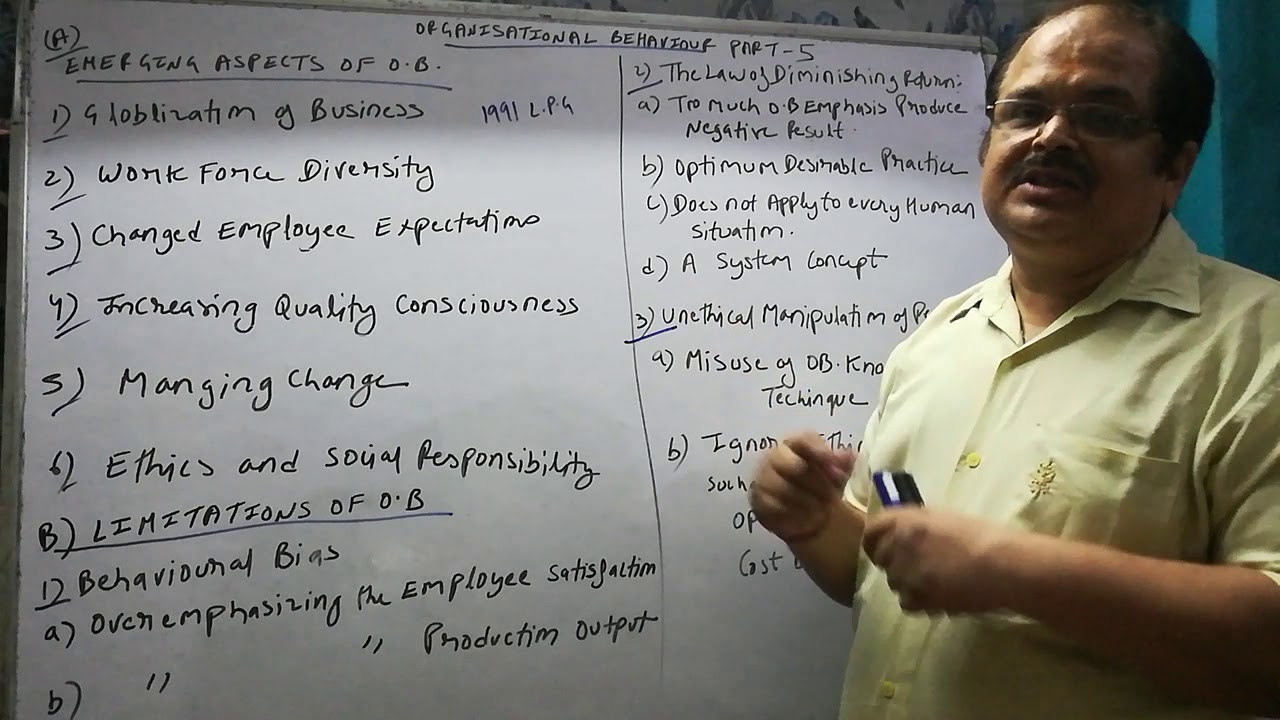 ORGANISATIONAL BEHAVIOUR PART-5
(A)
EMERGING ASPECTS OF O.B.
1) Globlization of Business 1991 L.P.G
2) Work Force Diversity
3) Changed Employee Expectations
4) Increasing Quality Consciousness
5) Manging Change
6) Ethics and Social Responsibility
B) LIMITATIONS OF O.B
1) Behavioural Bias
a) Overemphasizing the Employee Satisfaction
b) " " Production Output
2) The Law of Diminishing Return:
a) Too Much O.B Emphasis Produce
Negative Result.
b) Optimum Desirable Practice
c) Does not Apply to every Human
Situation.
d) A System Concept
3) Unethical Manipulation of
a) Misuse of OB.
Techinque
b)
Cost